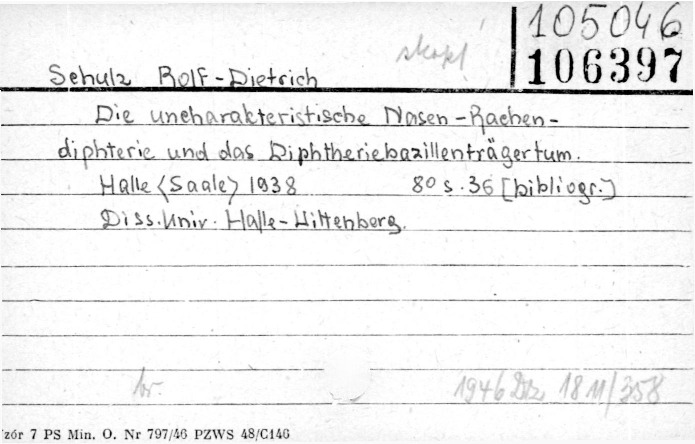 105046
skopl
106397
Schulz Rolf-Dietrich
Die uncharakteristische Nasen-Rachen-
diphterie und das Diphtheriebazillenträgertum.
Halle <Saale> 1938 8o s. 36 [bibliogr.]
Diss. Univ. Halle-Wittenberg.
br.
1946 18 11/358
zór 7 PS Min. O. Nr 797/46 PZWS 48/C146